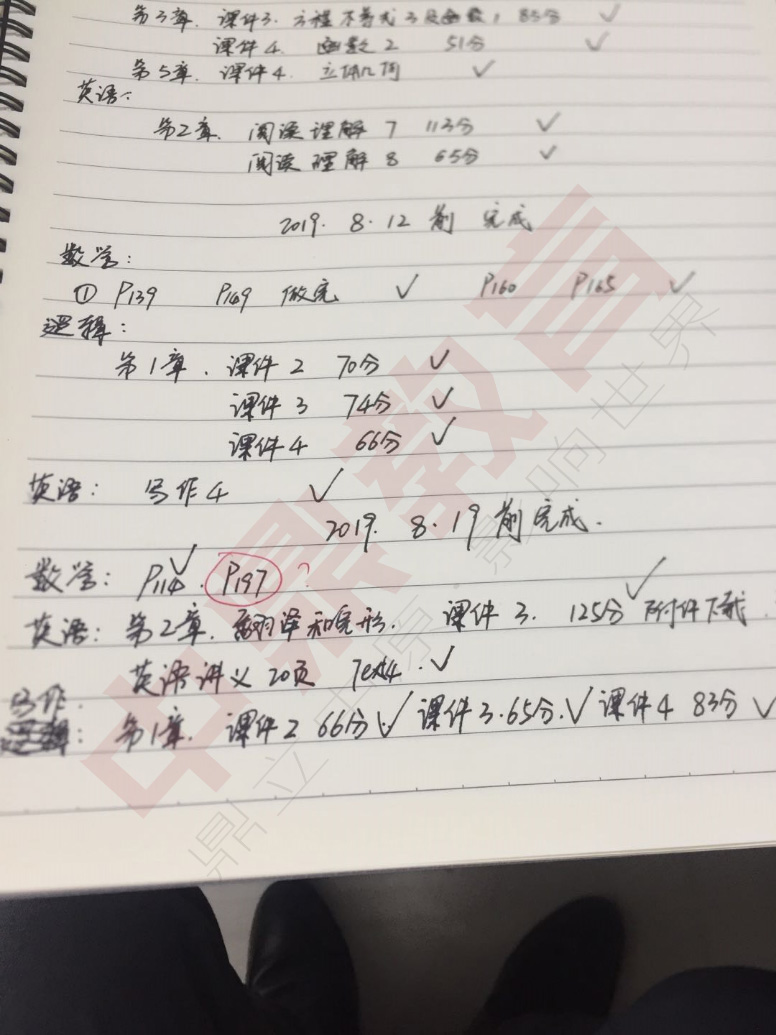 第3章. 课件3. 方程不等式3及函数1 85分 ✓
课件4. 函数2 51分 ✓
第5章. 课件4. 立体几何 ✓
英语:
第2章. 阅读理解7 113分 ✓
阅读理解8 65分 ✓
2019. 8.12 前完成
数学:
① P139 P149 做完 ✓ P160 P165 ✓
逻辑:
第1章. 课件2 70分 ✓
课件3 74分 ✓
课件4 66分 ✓
英语: 写作4 ✓
2019. 8.19 前完成.
数学: P114 ✓. P197 ?
英语: 第2章. 翻译和完形. 课件3. 125分 ✓ 附件下载.
英语讲义20页 Text4. ✓
写作.
逻辑: 第1章. 课件2 66分. ✓ 课件3. 65分. ✓ 课件4 83分 ✓
中鼎教育
鼎立中京·影响世界